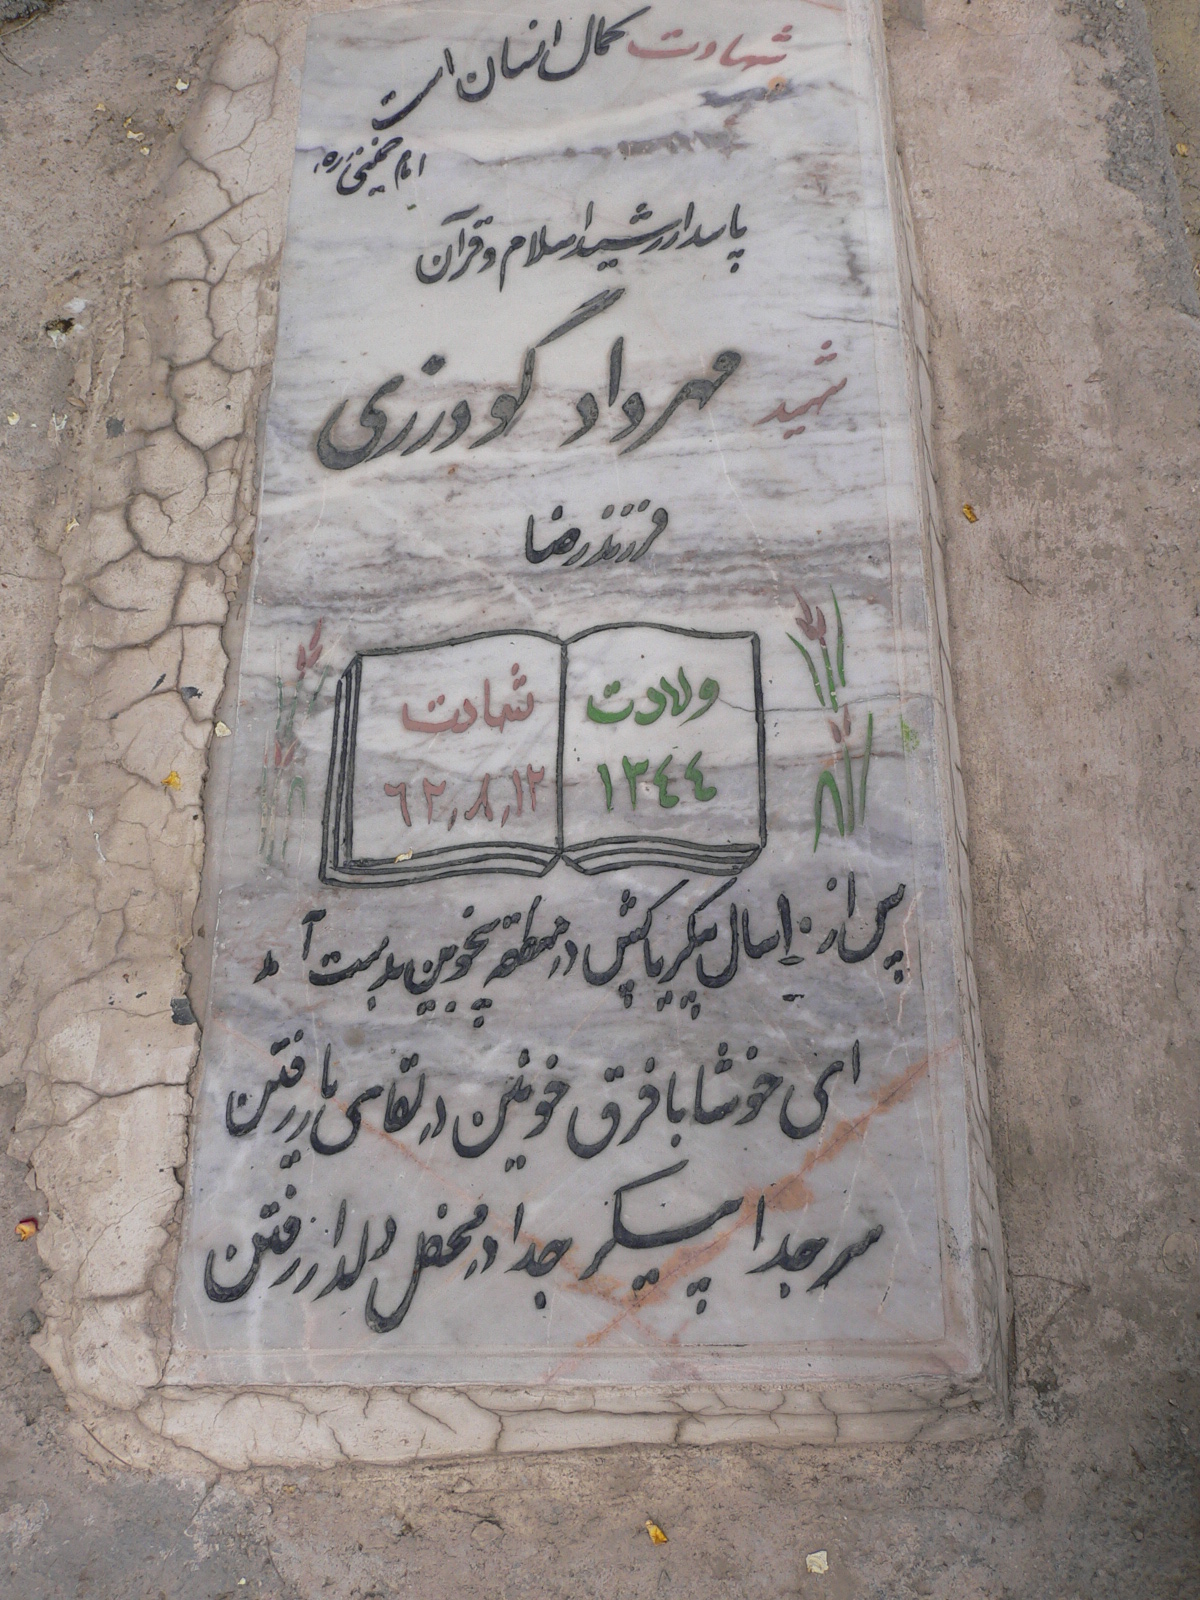 شهادت کمال انسان است
امام خمینی (ره)
پاسدار رشید اسلام و قرآن
شهید مهرداد گودرزی
فرزند رضا
ولادت
۱۳۴۴
شهادت
۶۲,۸,۱۲
پس از ۱۰ سال پیکر پاکش در منطقه پنجوین بدست آمد
ای خوشا با فرق خونین در لقای یار رفتن
سر جدا پیکر جدا در محفل دلدار رفتن